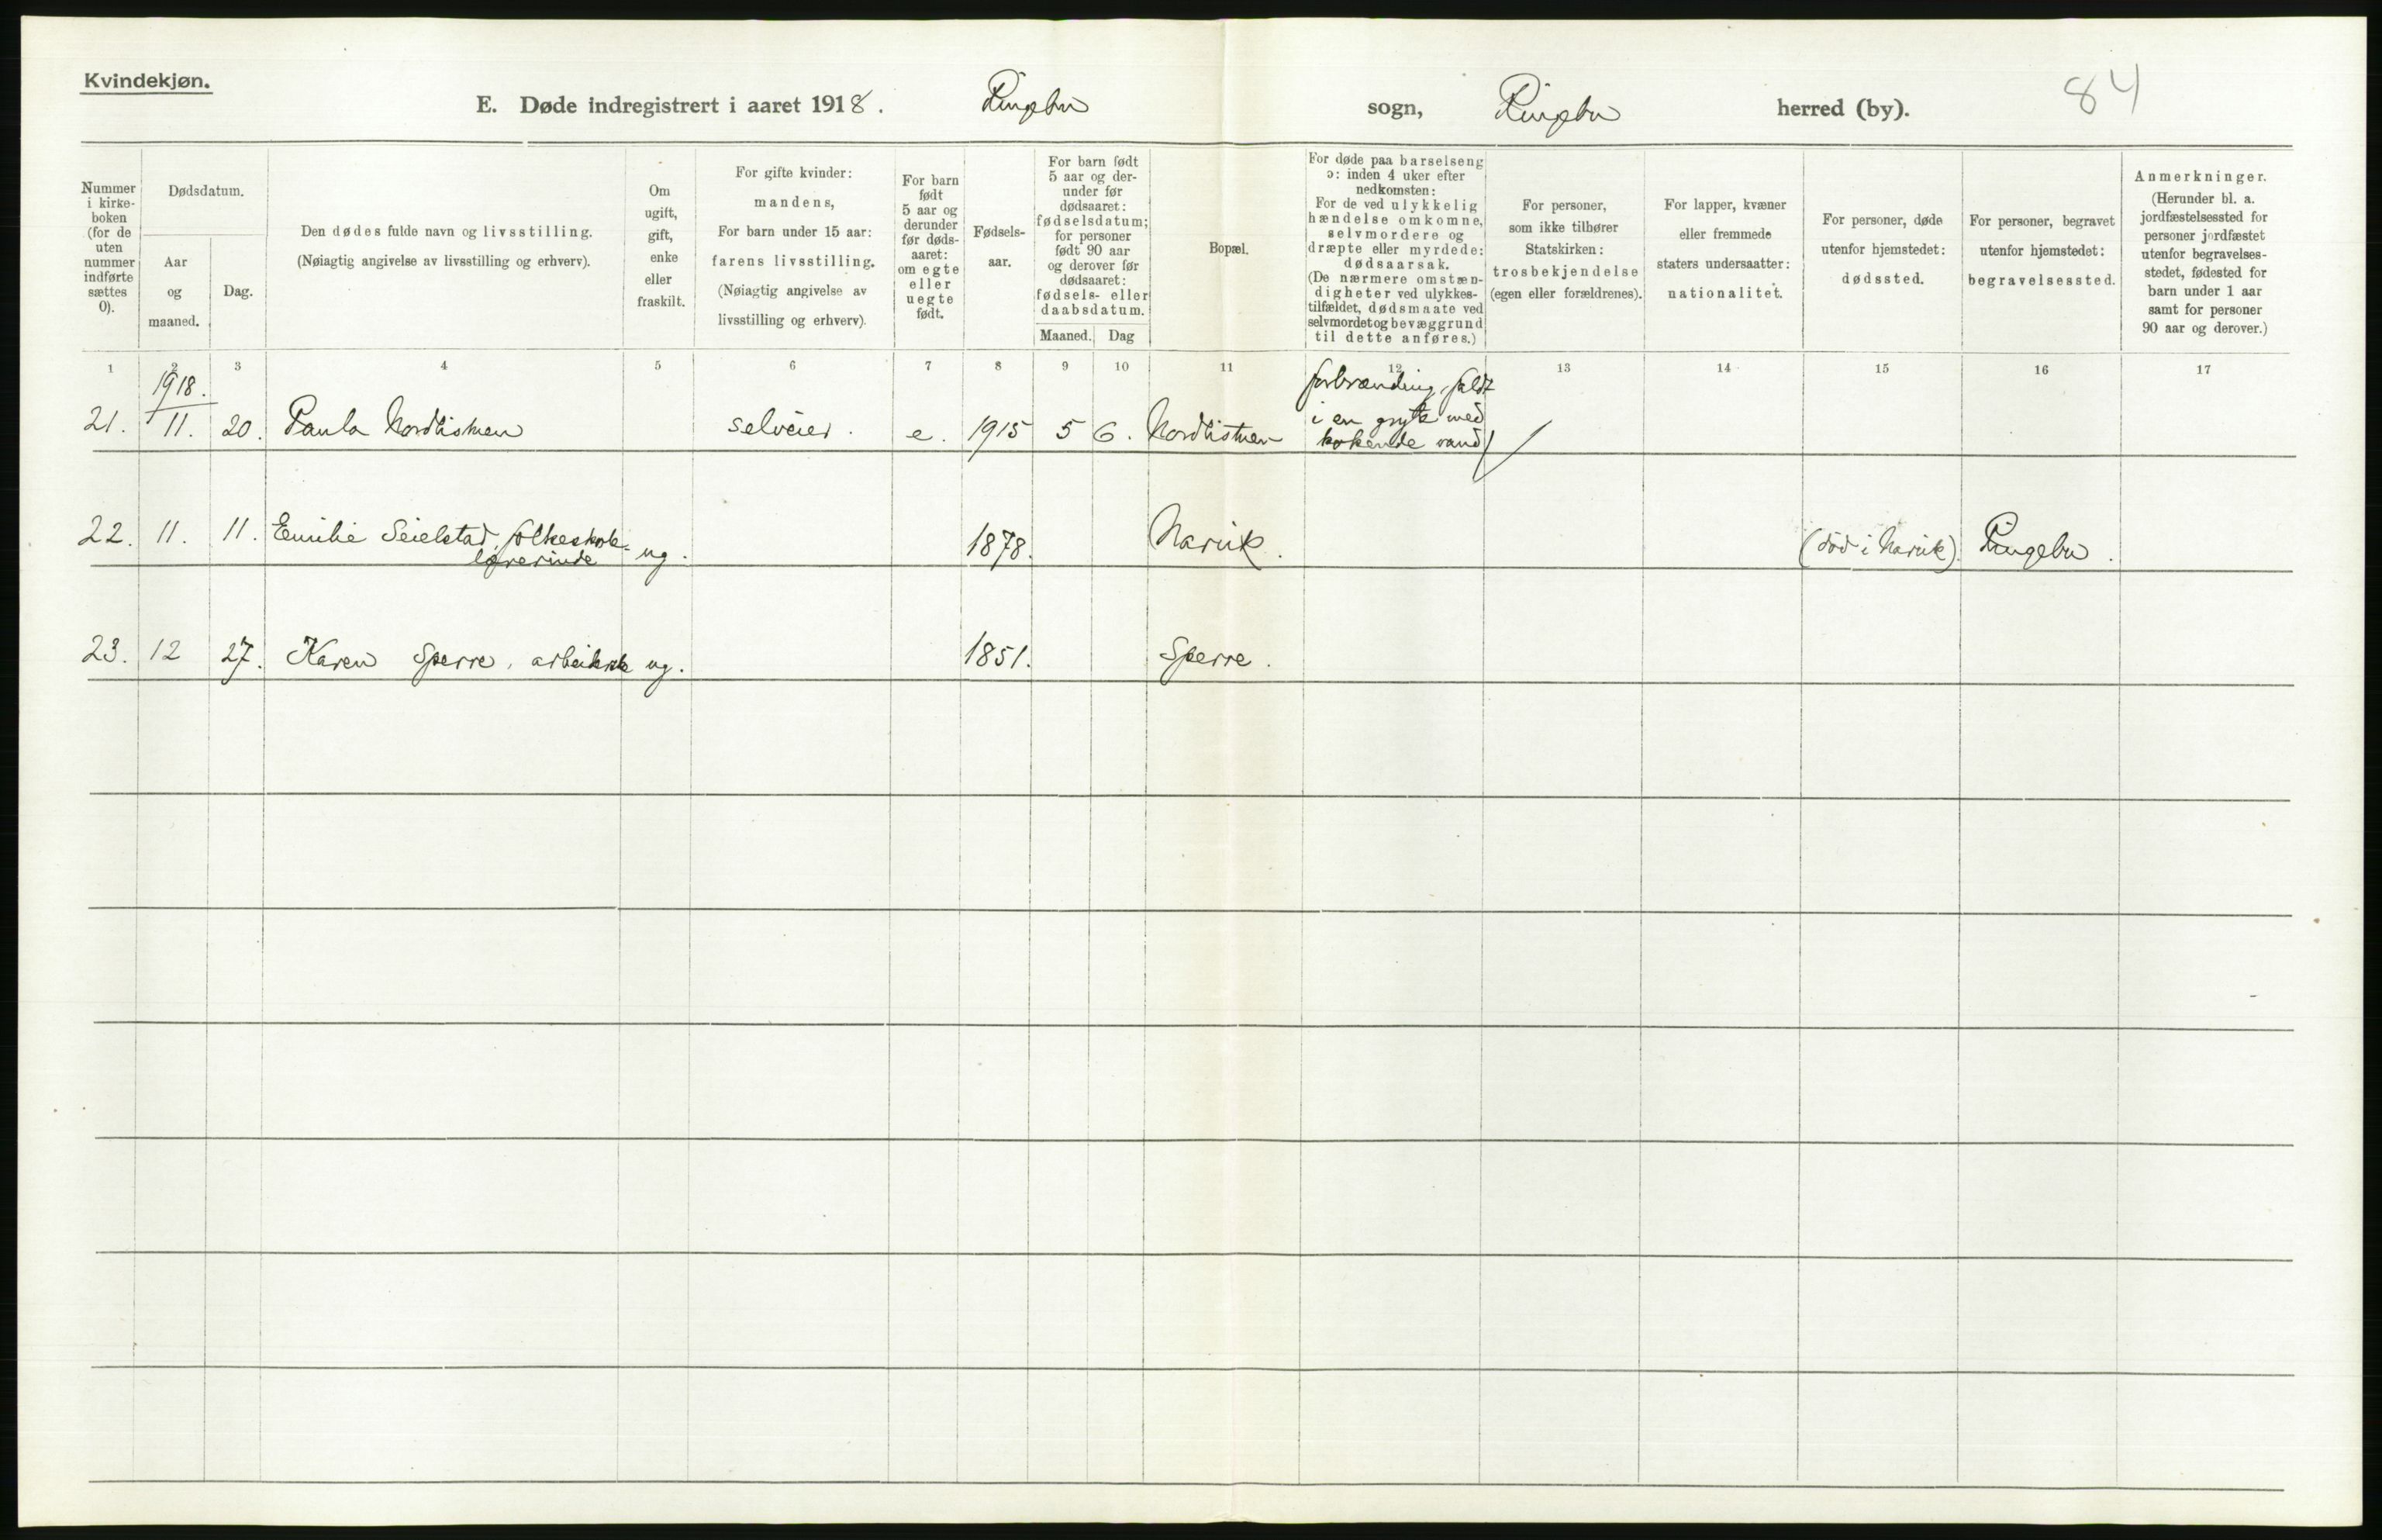 Kvindekjøn.
E. Døde indregistrert i aaret 1918. Ringebu sogn, Ringebu herred (by). 84
Nummer
i kirke-
boken
(for de
uten
nummer
indførte
sættes
0).
Dødsdatum.
Aar
og
maaned.
Dag.
Den dødes fulde navn og livsstilling.
(Nøiagtig angivelse av livsstilling og erhverv).
Om
ugift,
gift,
enke
eller
fraskilt.
For gifte kvinder:
mandens,
For barn under 15 aar:
farens livsstilling.
(Nøiagtig angivelse av
livsstilling og erhverv).
For barn
født
5 aar og
derunder
før døds-
aaret:
om egte
eller
uegte
født.
Fødsels-
aar.
For barn født
5 aar og der-
under før
dødsaaret:
fødselsdatum;
for personer
født 90 aar
og derover før
dødsaaret:
fødsels- eller
daabsdatum.
Maaned. Dag
Bopæl.
For døde paa barselseng
ɔ: inden 4 uker efter
nedkomsten:
For de ved ulykkelig
hændelse omkomne,
selvmordere og
dræpte eller myrdede:
dødsaarsak.
(De nærmere omstæn-
digheter ved ulykkes-
tilfældet, dødsmaate ved
selvmordet og bevæggrund
til dette anføres.)
For personer,
som ikke tilhører
Statskirken:
trosbekjendelse
(egen eller forældrenes).
For lapper, kvæner
eller fremmede
staters undersaatter:
nationalitet.
For personer, døde
utenfor hjemstedet:
dødssted.
For personer, begravet
utenfor hjemstedet:
begravelsessted.
Anmerkninger.
(Herunder bl. a.
jordfæstelsessted for
personer jordfæstet
utenfor begravelses-
stedet, fødested for
barn under 1 aar
samt for personer
90 aar og derover.)
1 2 3 4 5 6 7 8 9 10 11 12 13 14 15 16 17
1918.
21. 11. 20. Paula Nordlistuen selveier. e. 1915 5 6. Nordlistuen forbrænding, faldt
i en gryte med
kokende vand
22. 11. 11. Emilie Seielstad, folkeskole-
lærerinde ug. 1878. Narvik. (død i Narvik). Ringebu.
23. 12 27. Karen Sperre, ug. 1851. Sperre.